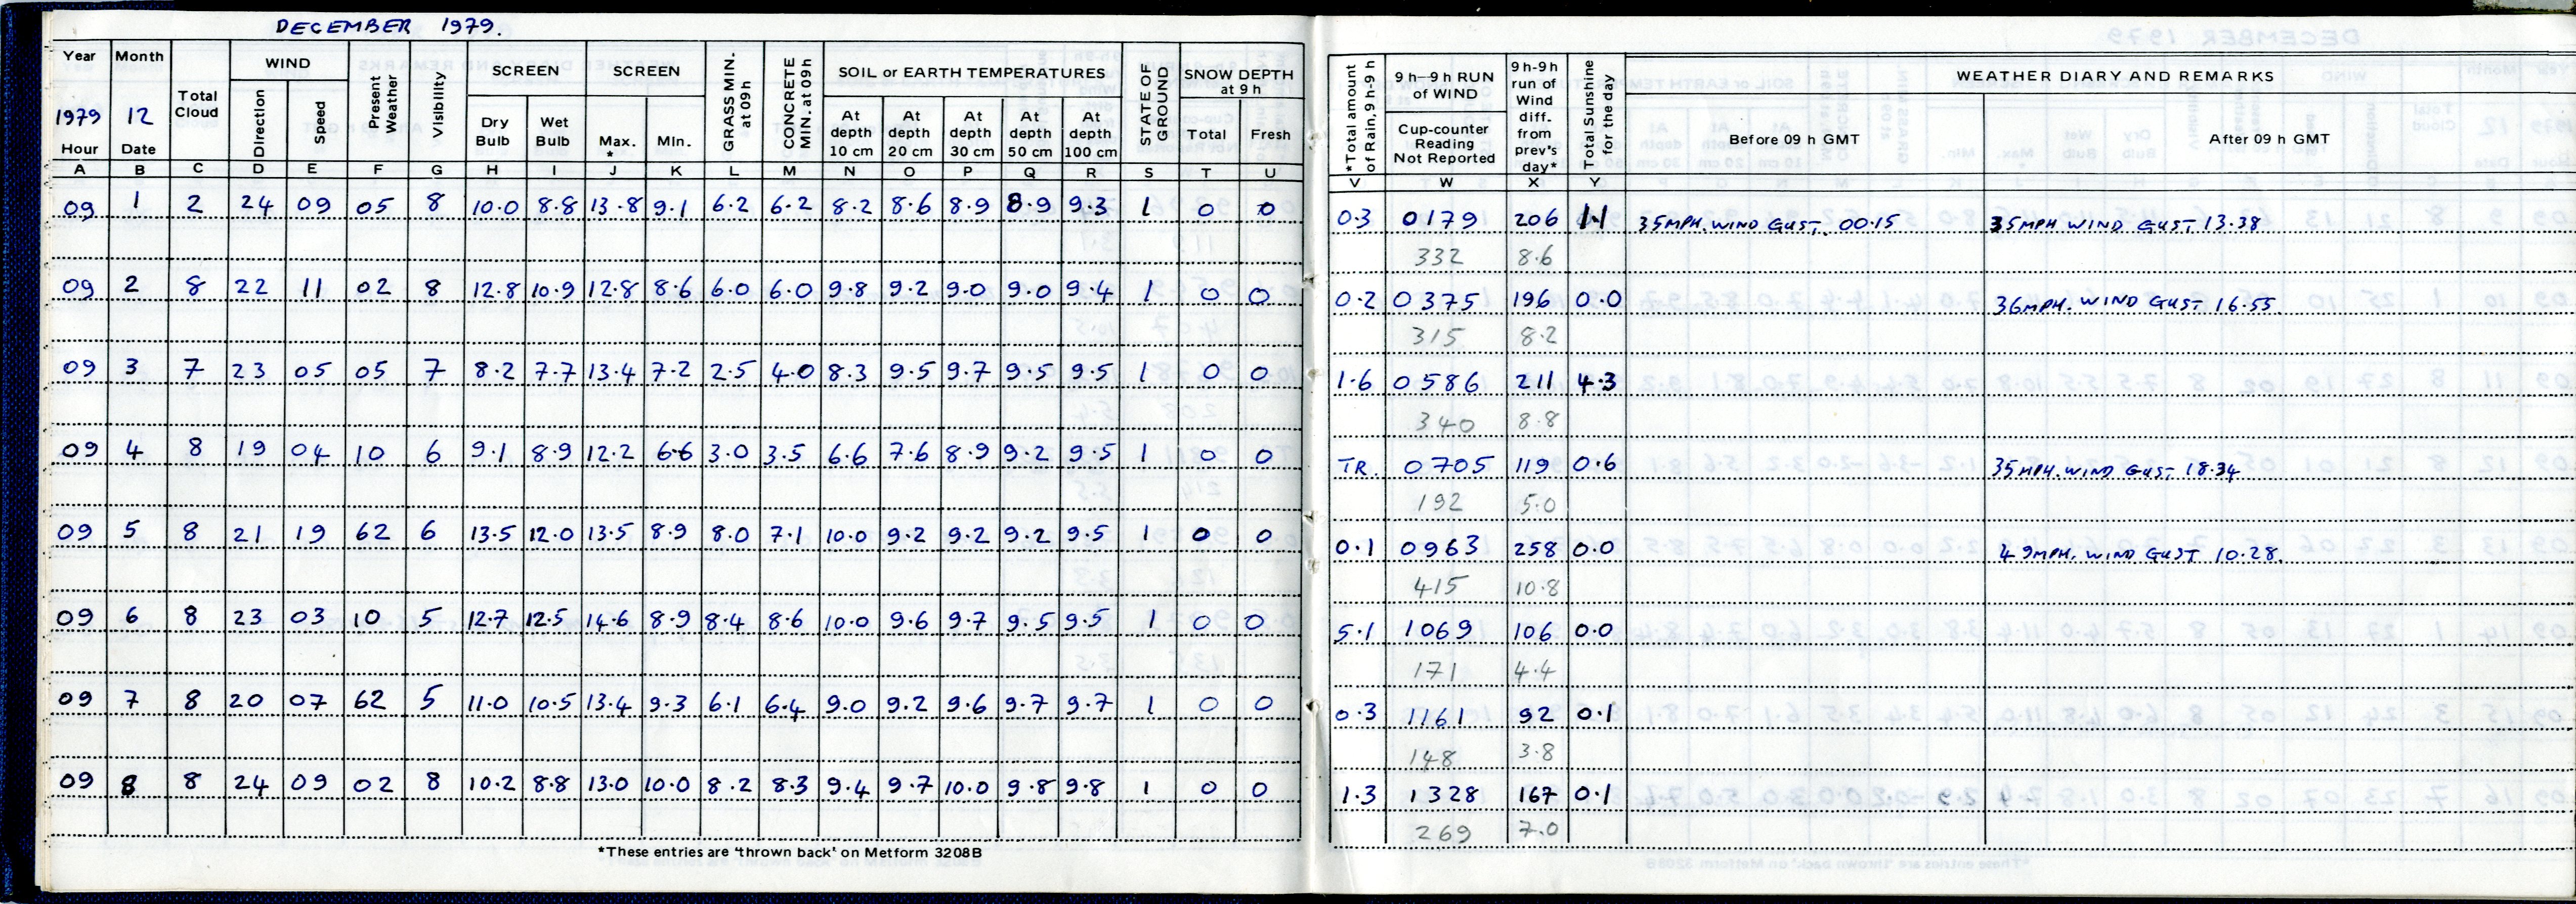 DECEMBER 1979.
Year Month Total Cloud WIND Present Weather Visibility SCREEN SCREEN GRASS MIN. at 09h CONCRETE MIN. at 09h SOIL or EARTH TEMPERATURES STATE OF GROUND SNOW DEPTH at 9 h
1979 12 Direction Speed Dry Bulb Wet Bulb Max. * Min. At depth 10 cm At depth 20 cm At depth 30 cm At depth 50 cm At depth 100 cm Total Fresh
Hour Date
A B C D E F G H I J K L M N O P Q R S T U
09 1 2 24 09 05 8 10.0 8.8 13.8 9.1 6.2 6.2 8.2 8.6 8.9 8.9 9.3 1 0 0
09 2 8 22 11 02 8 12.8 10.9 12.8 8.6 6.0 6.0 9.8 9.2 9.0 9.0 9.4 1 0 0
09 3 7 23 05 05 7 8.2 7.7 13.4 7.2 2.5 4.0 8.3 9.5 9.7 9.5 9.5 1 0 0
09 4 8 19 04 10 6 9.1 8.9 12.2 6.6 3.0 3.5 6.6 7.6 8.9 9.2 9.5 1 0 0
09 5 8 21 19 62 6 13.5 12.0 13.5 8.9 8.0 7.1 10.0 9.2 9.2 9.2 9.5 1 0 0
09 6 8 23 03 10 5 12.7 12.5 14.6 8.9 8.4 8.6 10.0 9.6 9.7 9.5 9.5 1 0 0
09 7 8 20 07 62 5 11.0 10.5 13.4 9.3 6.1 6.4 9.0 9.2 9.6 9.7 9.7 1 0 0
09 8 8 24 09 02 8 10.2 8.8 13.0 10.0 8.2 8.3 9.4 9.7 10.0 9.8 9.8 1 0 0
*These entries are 'thrown back' on Metform 3208B
*Total amount of Rain, 9 h-9 h 9 h—9 h RUN of WIND 9 h-9h run of Wind diff. from prev's day* Total Sunshine for the day WEATHER DIARY AND REMARKS
Cup-counter Reading Not Reported Before 09 h GMT After 09 h GMT
V W X Y
0.3 0179 206 1.1 35MPH. WIND GUST. 00.15 35MPH WIND GUST 13.38
332 8.6
0.2 0375 196 0.0 36MPH. WIND GUST 16.55
315 8.2
1.6 0586 211 4.3
340 8.8
TR. 0705 119 0.6 35MPH. WIND GUST 18.34
192 5.0
0.1 0963 258 0.0 49MPH. WIND GUST 10.28.
415 10.8
5.1 1069 106 0.0
171 4.4
0.3 1161 92 0.1
148 3.8
1.3 1328 167 0.1
269 7.0